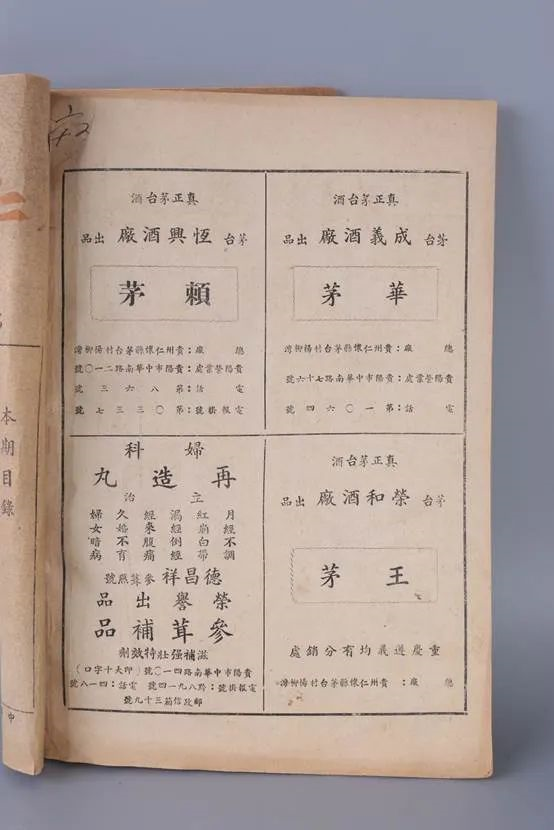 真正茅台酒
茅台 成義酒廠 出品
華茅
總廠：貴州仁懷縣茅台村楊柳灣
貴陽營業處：貴陽市中華南路七十六號
電話：第一〇六四號
真正茅台酒
茅台 恆興酒廠 出品
賴茅
總廠：貴州仁懷縣茅台村楊柳灣
貴陽營業處：貴陽市中華南路二一〇號
電話：第八六三號
電報掛號：第〇三三七號
真正茅台酒
茅台 榮和酒廠 出品
王茅
重慶遵義均有分銷處
總廠：貴州仁懷縣茅台村楊柳灣
婦科
再造丸
主治
月經不調
紅崩白帶
漏經倒經
經來腹痛
久婚不育
婦女暗病
德昌祥參茸燕號
榮譽出品
參茸補品
滋補强壯特效劑
貴陽市中華南路四一〇號（即大十字口）
電報掛號：黔八九一四號 電話：四一八號
郵政信箱三十九號
本期目錄
中